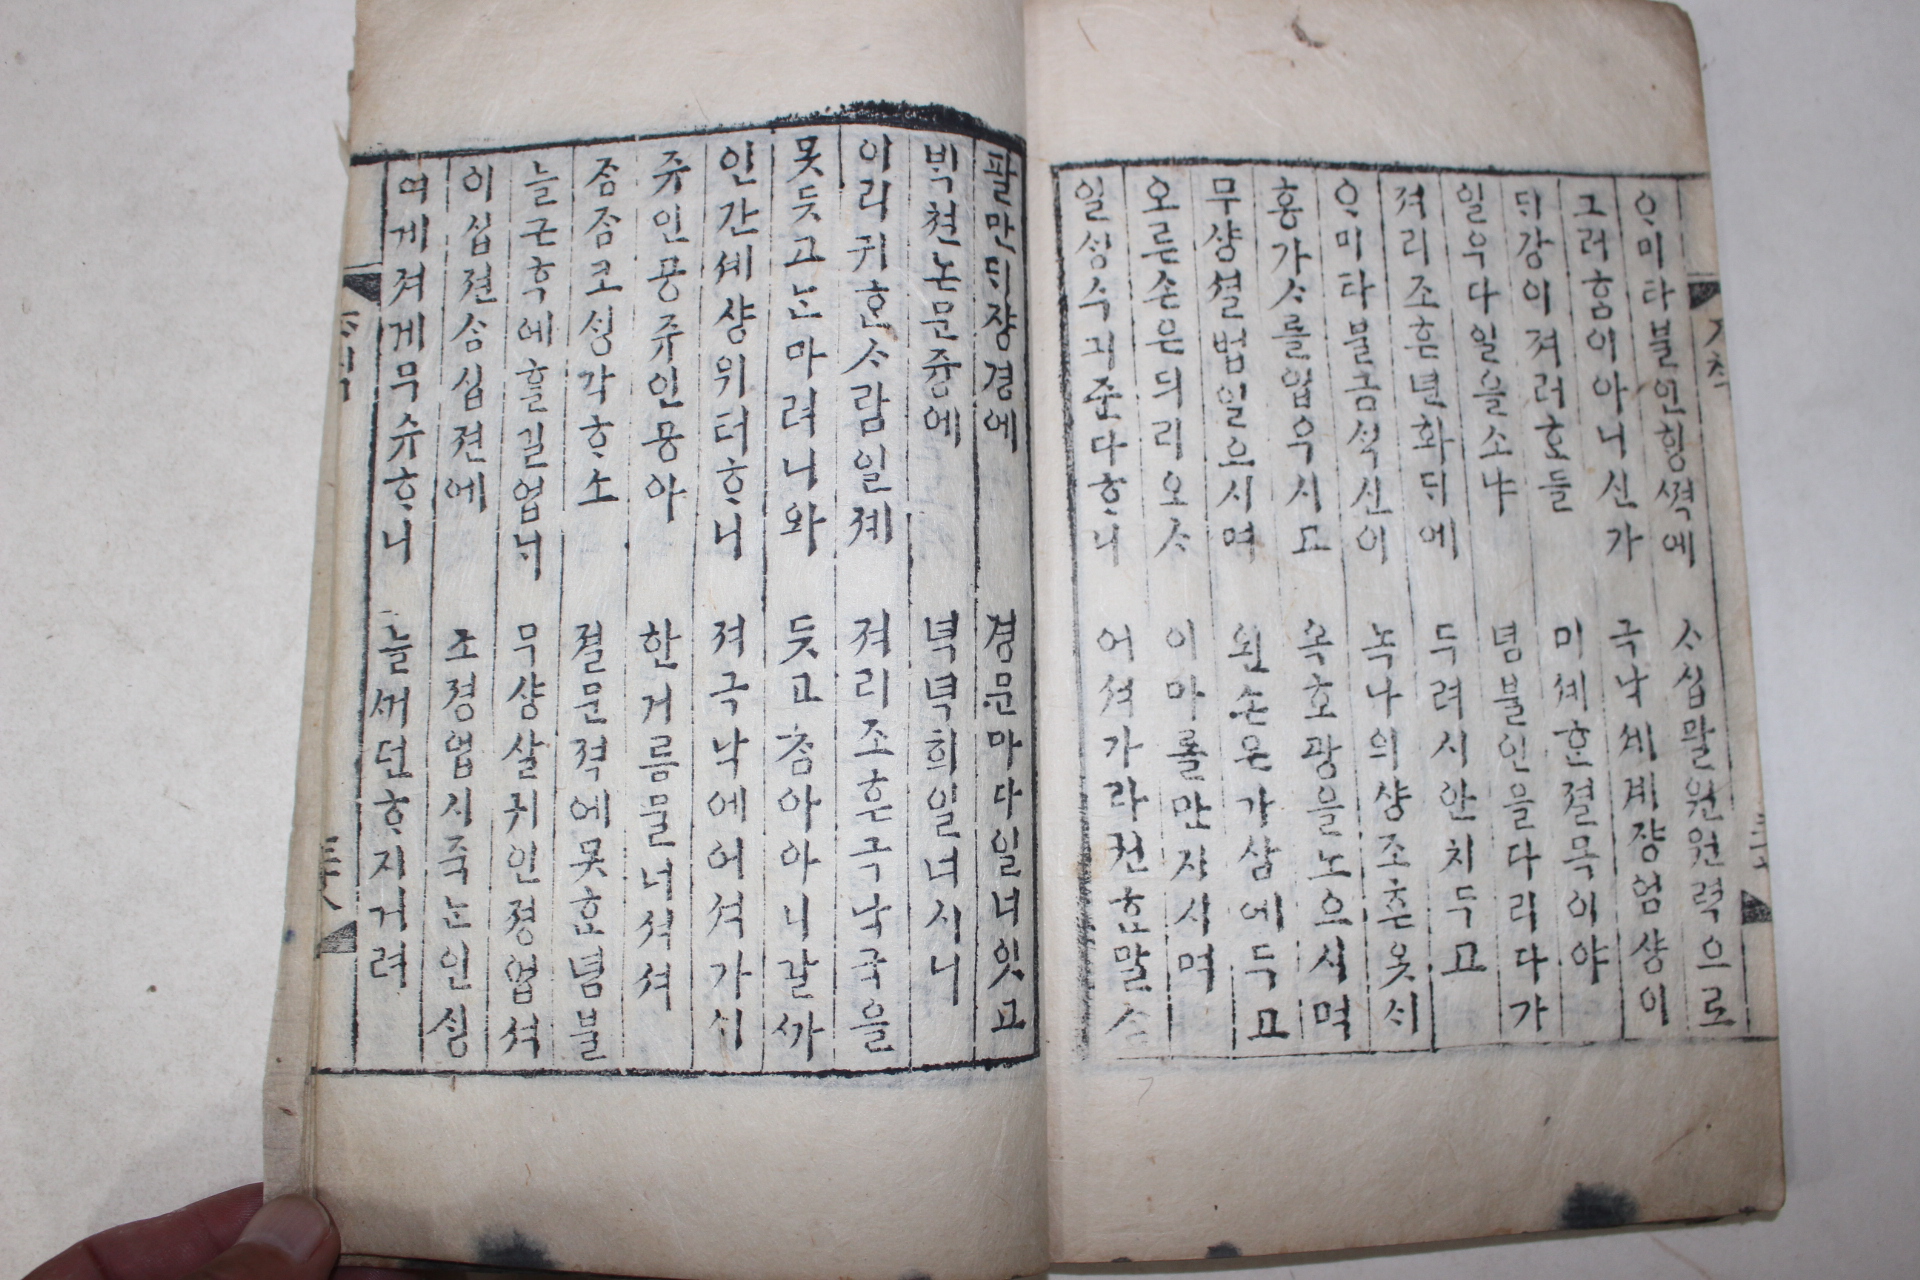 ᄋᆞ미타불인ᄒᆡᆼ쎡에 ᄉᆞ십팔원원력으로
그러홈이아니신가 극낙셰계쟝엄샹이
ᄃᆡ강이져러호들 미셰ᄒᆞᆫ졀목이야
일우다일을소냐 념불인을다리다가
져리조흔년화ᄃᆡ에 두려시안치두고
ᄋᆞ미타불금ᄉᆡᆨ신이 녹나의샹조흔옷ᄉᆡ
홍가ᄉᆞ를업우시고 옥호광을노으시며
무샹셜법일으시며 왼손은가삼에두고
오른손은듸리오ᄉᆞ 이마를만지시며
일셩수긔준다ᄒᆞ니 어셔가라권ᄒᆞᆫ말ᄉᆞ
팔만ᄃᆡ쟝경에 경문마다일너잇고
ᄇᆡᆨ쳔논문즁에 녁녁희일너시니
이리귀ᄒᆞᆫᄉᆞ람일졔 져리조흔극낙국을
못듯고ᄂᆞᆫ마려니와 듯고ᄎᆞᆷ아아니갈ᄭᅡ
인간셰샹위터ᄒᆞ니 져극낙에어셔가ᄉᆡ
쥬인공쥬인공아 한거름물너셔셔
죰죰코ᄉᆡᆼ각ᄒᆞ소 졀문젹에못ᄒᆞᆫ념불
늘근후에ᄒᆞᆯ길업ᄂᆡ 무샹살귀인졍업셔
이십젼삼십젼에 조졍업시죽ᄂᆞᆫ인ᄉᆡᆼ
여게져게무슈ᄒᆞ니 늘셔던ᄒᆞ지거려